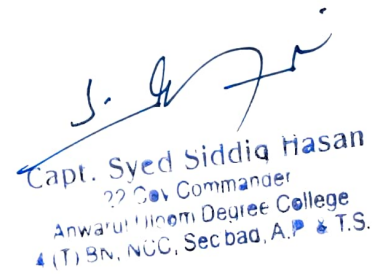 Capt. Syed Siddiq Hasan
22 Coy Commander
Anwarul Uloom Degree College
4 (T) BN, NCC, Sec bad, A.P & T.S.